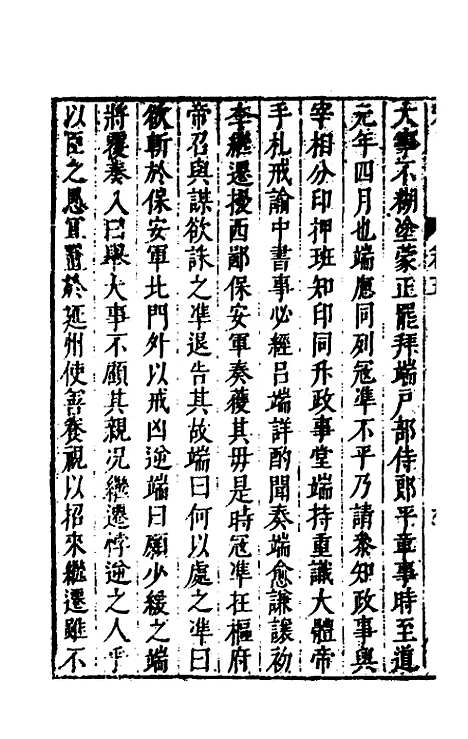 大事不糊塗蒙正罷拜端戸部侍郎平章事時至道
元年四月也端應同列冦凖不平乃請叅知政事與
宰相分印押班知印同升政事堂端持重識大體帝
手札戒諭中書事必經吕端詳酌聞奏端愈謙讓初
李繼遷擾西鄙保安軍奏獲其毋是時冦凖在樞府
帝召與謀欲誅之凖退告其故端曰何以處之凖曰
欲斬於保安軍北門外以戒凶逆端曰願少緩之端
將覆奏入曰舉大事不顧其親况繼遷悖逆之人乎
以臣之愚宜置於延州使善養視以招來繼遷雖不